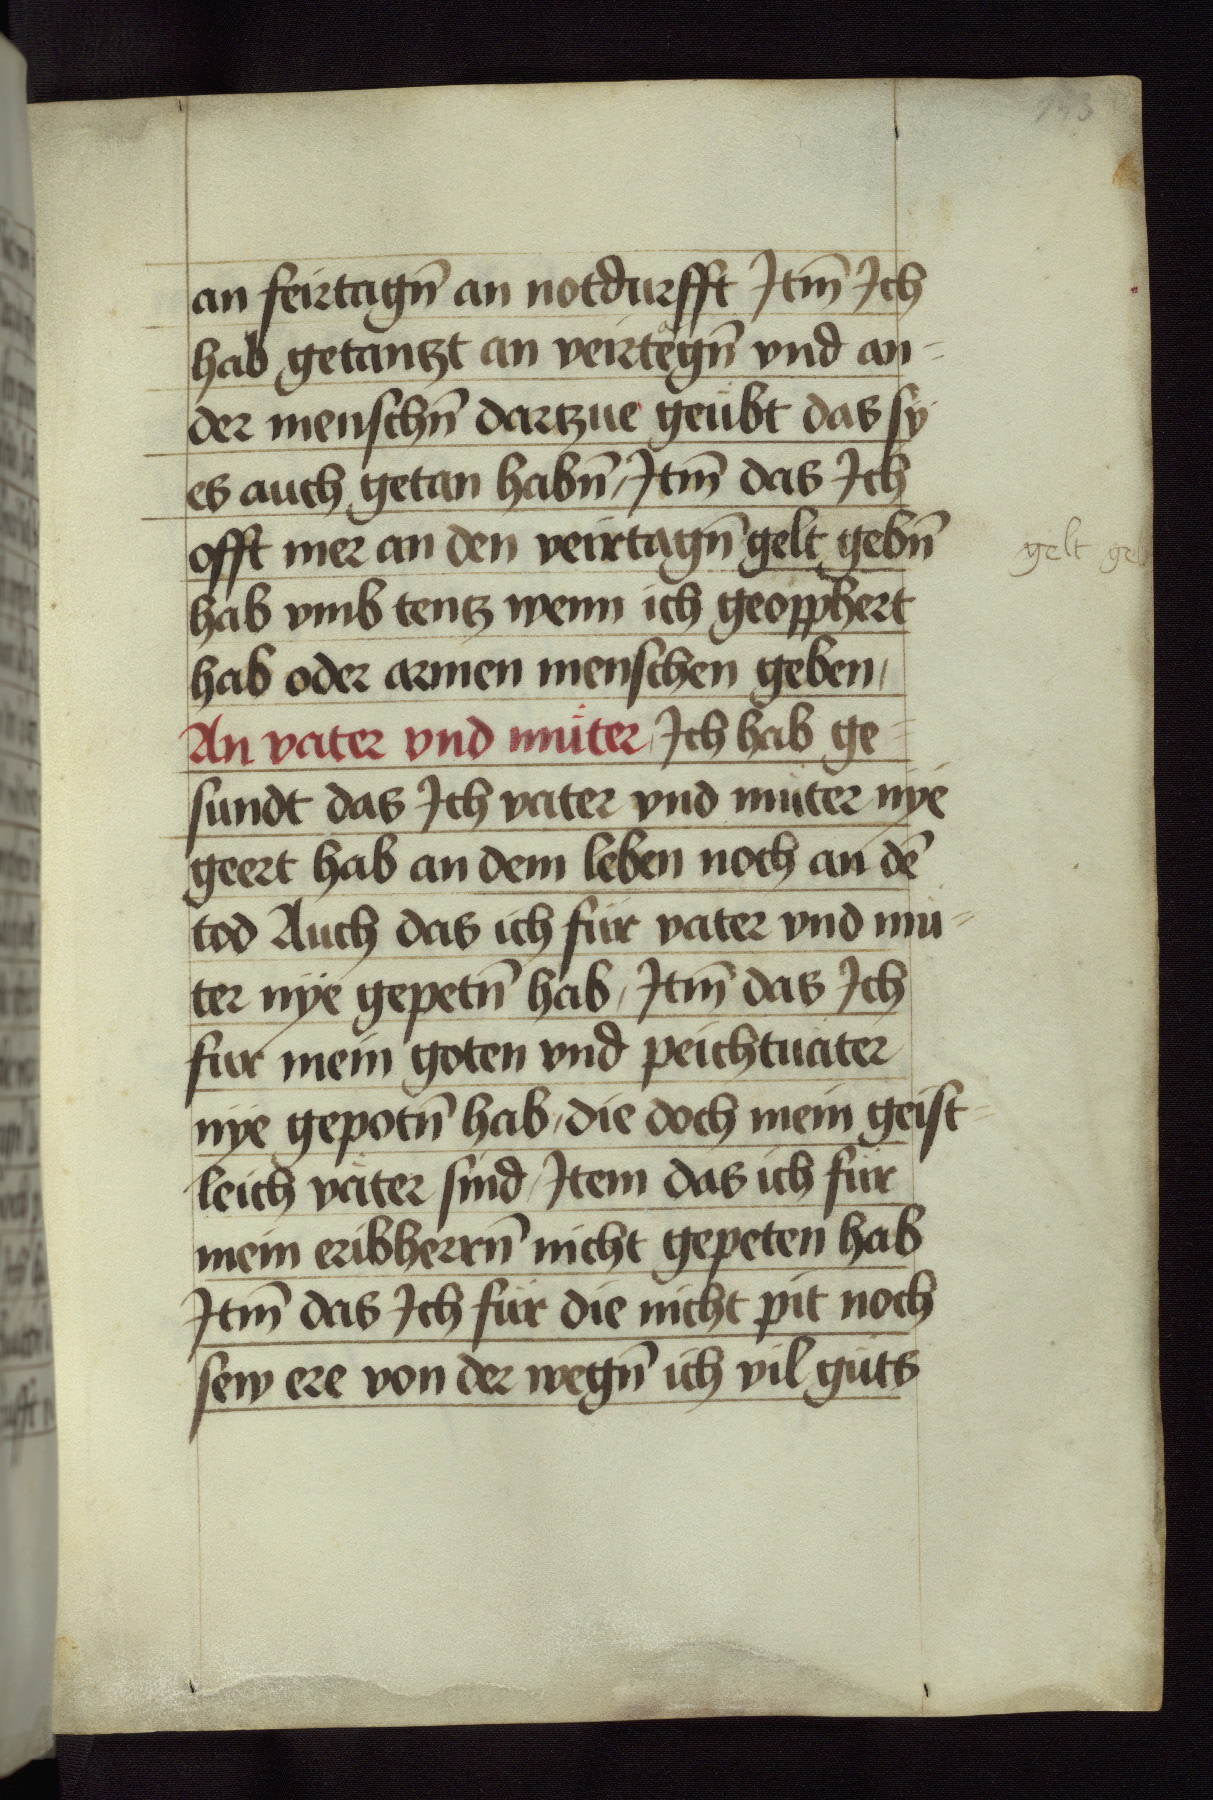 143
an feirtagn̄ an notdurfft Itm̄ Ich
hab getantzt an veirtegn̄ vnd an-
der menschn̄ dartzue geübt das sy
es auch getan habn̄, Itm̄ das Ich
offt mer an den veirtagn̄ gelt gebn̄
gelt
hab vmb tentz wenn ich geopphert
hab oder armen menschen geben,
An vater vnd müter, Ich hab ge-
sundt das Ich vater vnd müter nÿe
geert hab an dem leben noch an dē
tod Auch das ich für vater vnd mü-
ter nÿe gepetn̄ hab, Itm̄ das Ich
fur mein goten vnd peichtuater
nye gepotn̄ hab, die doch mein geist-
leich väter sind, Item das ich für
mein eribherrn̄ nicht gepeten hab
Itm̄ das Ich für die nicht pit noch
sew ere von der wegn̄ ich vil güts